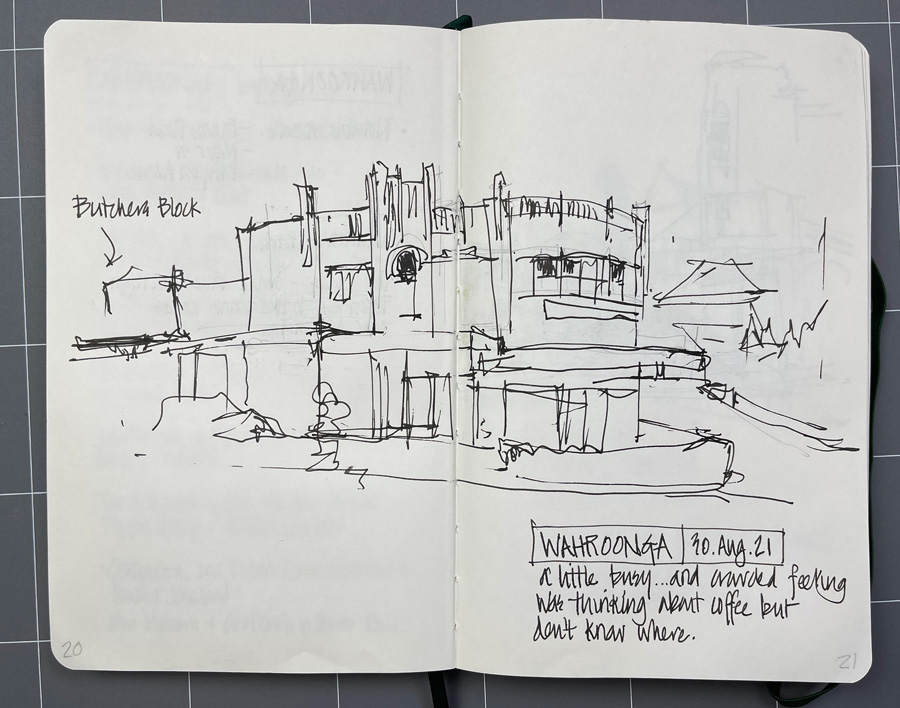 Butchers Block
WAHROONGA 30.Aug.21
a little busy...and crowded feeling
was thinking about coffee but
don't know where.
20
21